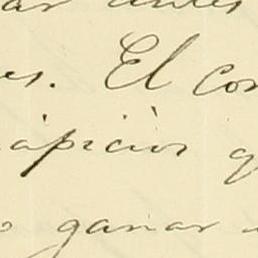 ar antes
es. El con
ápicios q
o ganar